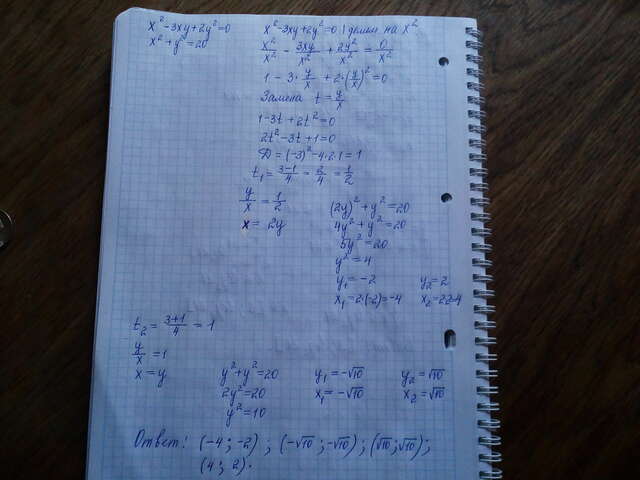 x² - 3xy + 2y² = 0
x² + y² = 20
x² - 3xy + 2y² = 0 | делим на x²
x²/x² - 3xy/x² + 2y²/x² = 0/x²
1 - 3 · y/x + 2 · (y/x)² = 0
Замена t = y/x
1 - 3t + 2t² = 0
2t² - 3t + 1 = 0
D = (-3)² - 4 · 2 · 1 = 1
t₁ = (3-1)/4 = 2/4 = 1/2
y/x = 1/2
x = 2y
(2y)² + y² = 20
4y² + y² = 20
5y² = 20
y² = 4
y₁ = -2 y₂ = 2
x₁ = 2·(-2) = -4 x₂ = 2·2=4
t₂ = (3+1)/4 = 1
y/x = 1
x = y
y² + y² = 20
2y² = 20
y² = 10
y₁ = -√10 y₂ = √10
x₁ = -√10 x₂ = √10
Ответ: (-4; -2) ; (-√10 ; -√10) ; (√10 ; √10) ;
(4 ; 2).